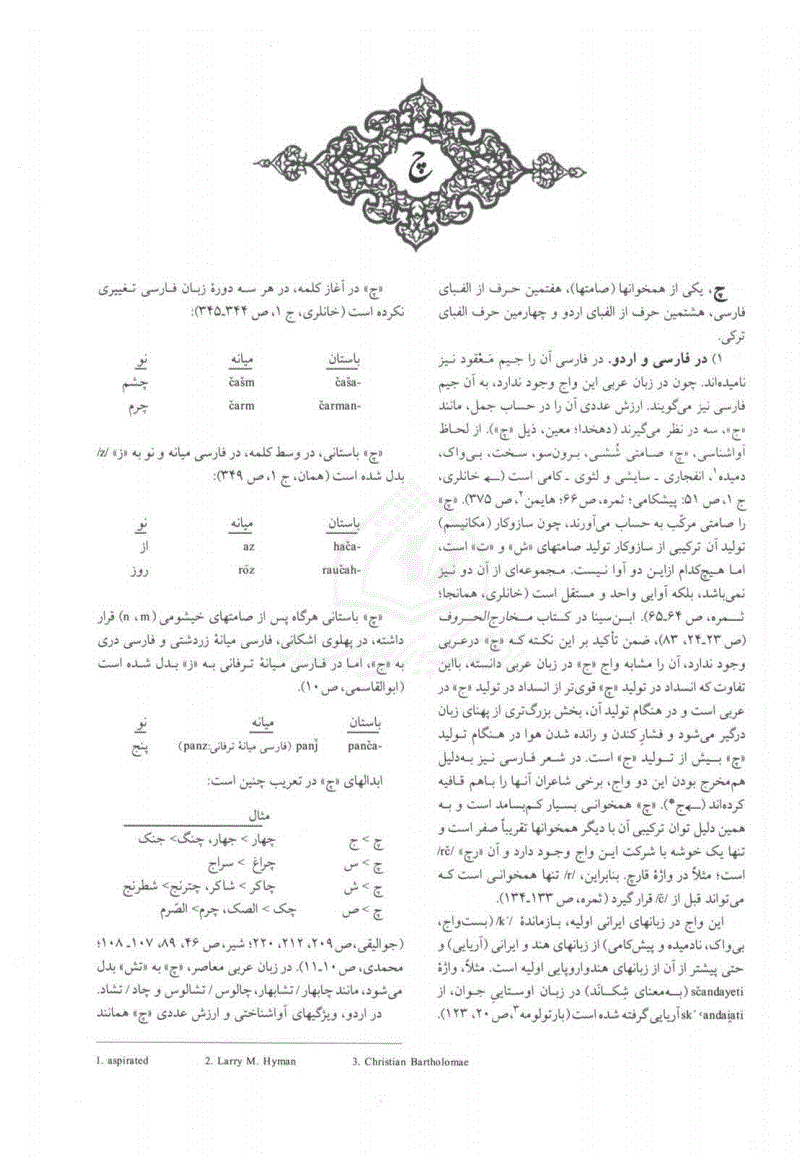 چ
چ، یکی از همخوانها (صامتها)، هفتمین حرف از الفبای
فارسی، هشتمین حرف از الفبای اردو و چهارمین حرف الفبای
ترکی.
۱) در فارسی و اردو. در فارسی آن را جیم مَعْقود نیز
نامیده‌اند. چون در زبان عربی این واج وجود ندارد، به آن جیم
فارسی نیز می‌گویند. ارزش عددی آن را در حساب جمل، مانند
«ج»، سه در نظر می‌گیرند (دهخدا؛ معین، ذیل «چ»). از لحاظ
آواشناسی، «چ» صامتی شُشی، برون‌سو، سخت، بی‌واک،
دمیده۱، انفجاری ـ سایشی و لثوی ـ کامی است (← خانلری،
ج ۱، ص ۵۱: پیشکامی؛ ثمره، ص ۶۶؛ هایمن۲، ص ۳۷۵). «چ»
را صامتی مرکّب به حساب می‌آورند، چون سازوکار (مکانیسم)
تولید آن ترکیبی از سازوکار تولید صامتهای «ش» و «ت» است،
اما هیچ‌کدام ازاین دو آوا نیست. مجموعه‌ای از آن دو نیز
نمی‌باشد، بلکه آوایی واحد و مستقل است (خانلری، همانجا؛
ثمره، ص ۶۴ـ۶۵). ابن‌سینا در کتاب مخارج‌الحروف
(ص ۲۳ـ۲۴، ۸۳)، ضمن تأکید بر این نکته که «چ» درعربی
وجود ندارد، آن را مشابه واج «ج» در زبان عربی دانسته، بااین
تفاوت که انسداد در تولید «چ» قوی‌تر از انسداد در تولید «ج» در
عربی است و در هنگام تولید آن، بخش بزرگ‌تری از پهنای زبان
درگیر می‌شود و فشارِ کندن و رانده شدن هوا در هنگام تولید
«چ» بیش از تولید «ج» است. در شعر فارسی نیز به‌دلیل
هم‌مخرج بودن این دو واج، برخی شاعران آنها را باهم قافیه
کرده‌اند (← ج*). «چ» همخوانی بسیار کم‌بسامد است و به
همین دلیل توان ترکیبی آن با دیگر همخوانها تقریباً صفر است و
تنها یک خوشه با شرکت این واج وجود دارد و آن «رچ» /rč/
است؛ مثلاً در واژهٔ قارچ. بنابراین، /r/ تنها همخوانی است که
می‌تواند قبل از /č/ قرار گیرد (ثمره، ص ۱۳۳ـ۱۳۴).
این واج در زبانهای ایرانی اولیه، بازماندهٔ /k´/ (بست‌واج،
بی‌واک، نادمیده و پیش‌کامی) از زبانهای هند و ایرانی (آریایی) و
حتی پیشتر از آن از زبانهای هندواروپایی اولیه است. مثلاً، واژهٔ
sčandayeti (به‌معنای شِکانَد) در زبان اوستایی جوان، از
sk´ʿandai̯ati آریایی گرفته شده است (بارتولومه۳، ص ۲۰، ۱۲۳).
«چ» در آغاز کلمه، در هر سه دورهٔ زبان فارسی تغییری
نکرده است (خانلری، ج ۱، ص ۳۴۴ـ۳۴۵):
باستان میانه نو
čaša- čašm چشم
čarman- čarm چرم
«چ» باستانی، در وسط کلمه، در فارسی میانه و نو به «ز» /z/
بدل شده است (همان، ج ۱، ص ۳۴۹):
باستان میانه نو
hača- az از
raučah- rōz روز
«چ» باستانی هرگاه پس از صامتهای خیشومی (n ، m) قرار
داشته، در پهلوی اشکانی، فارسی میانهٔ زردشتی و فارسی دری
به «ج»، اما در فارسی میانهٔ ترفانی به «ز» بدل شده است
(ابوالقاسمی، ص ۱۰).
باستان میانه نو
panča- panǰ (فارسی میانهٔ ترفانی: panz) پنج
ابدالهای «چ» در تعریب چنین است:
مثال
چ > ج چهار > جهار، چنگ> جنک
چ > س چراغ > سراج
چ > ش چاکر > شاکر، چترنج> شطرنج
چ > ص چک > الصک، چرم> الصّرم
(جوالیقی، ص ۲۰۹، ۲۱۲، ۲۲۰؛ شیر، ص ۴۶، ۸۹، ۱۰۷ـ۱۰۸؛
محمدی، ص ۱۰ـ۱۱). در زبان عربی معاصر، «چ» به «تش» بدل
می‌شود، مانند چابهار / تشابهار، چالوس / تشالوس و چاد / تشاد.
در اردو، ویژگیهای آواشناختی و ارزش عددی «چ» همانند
1. aspirated 2. Larry M. Hyman 3. Christian Bartholomae